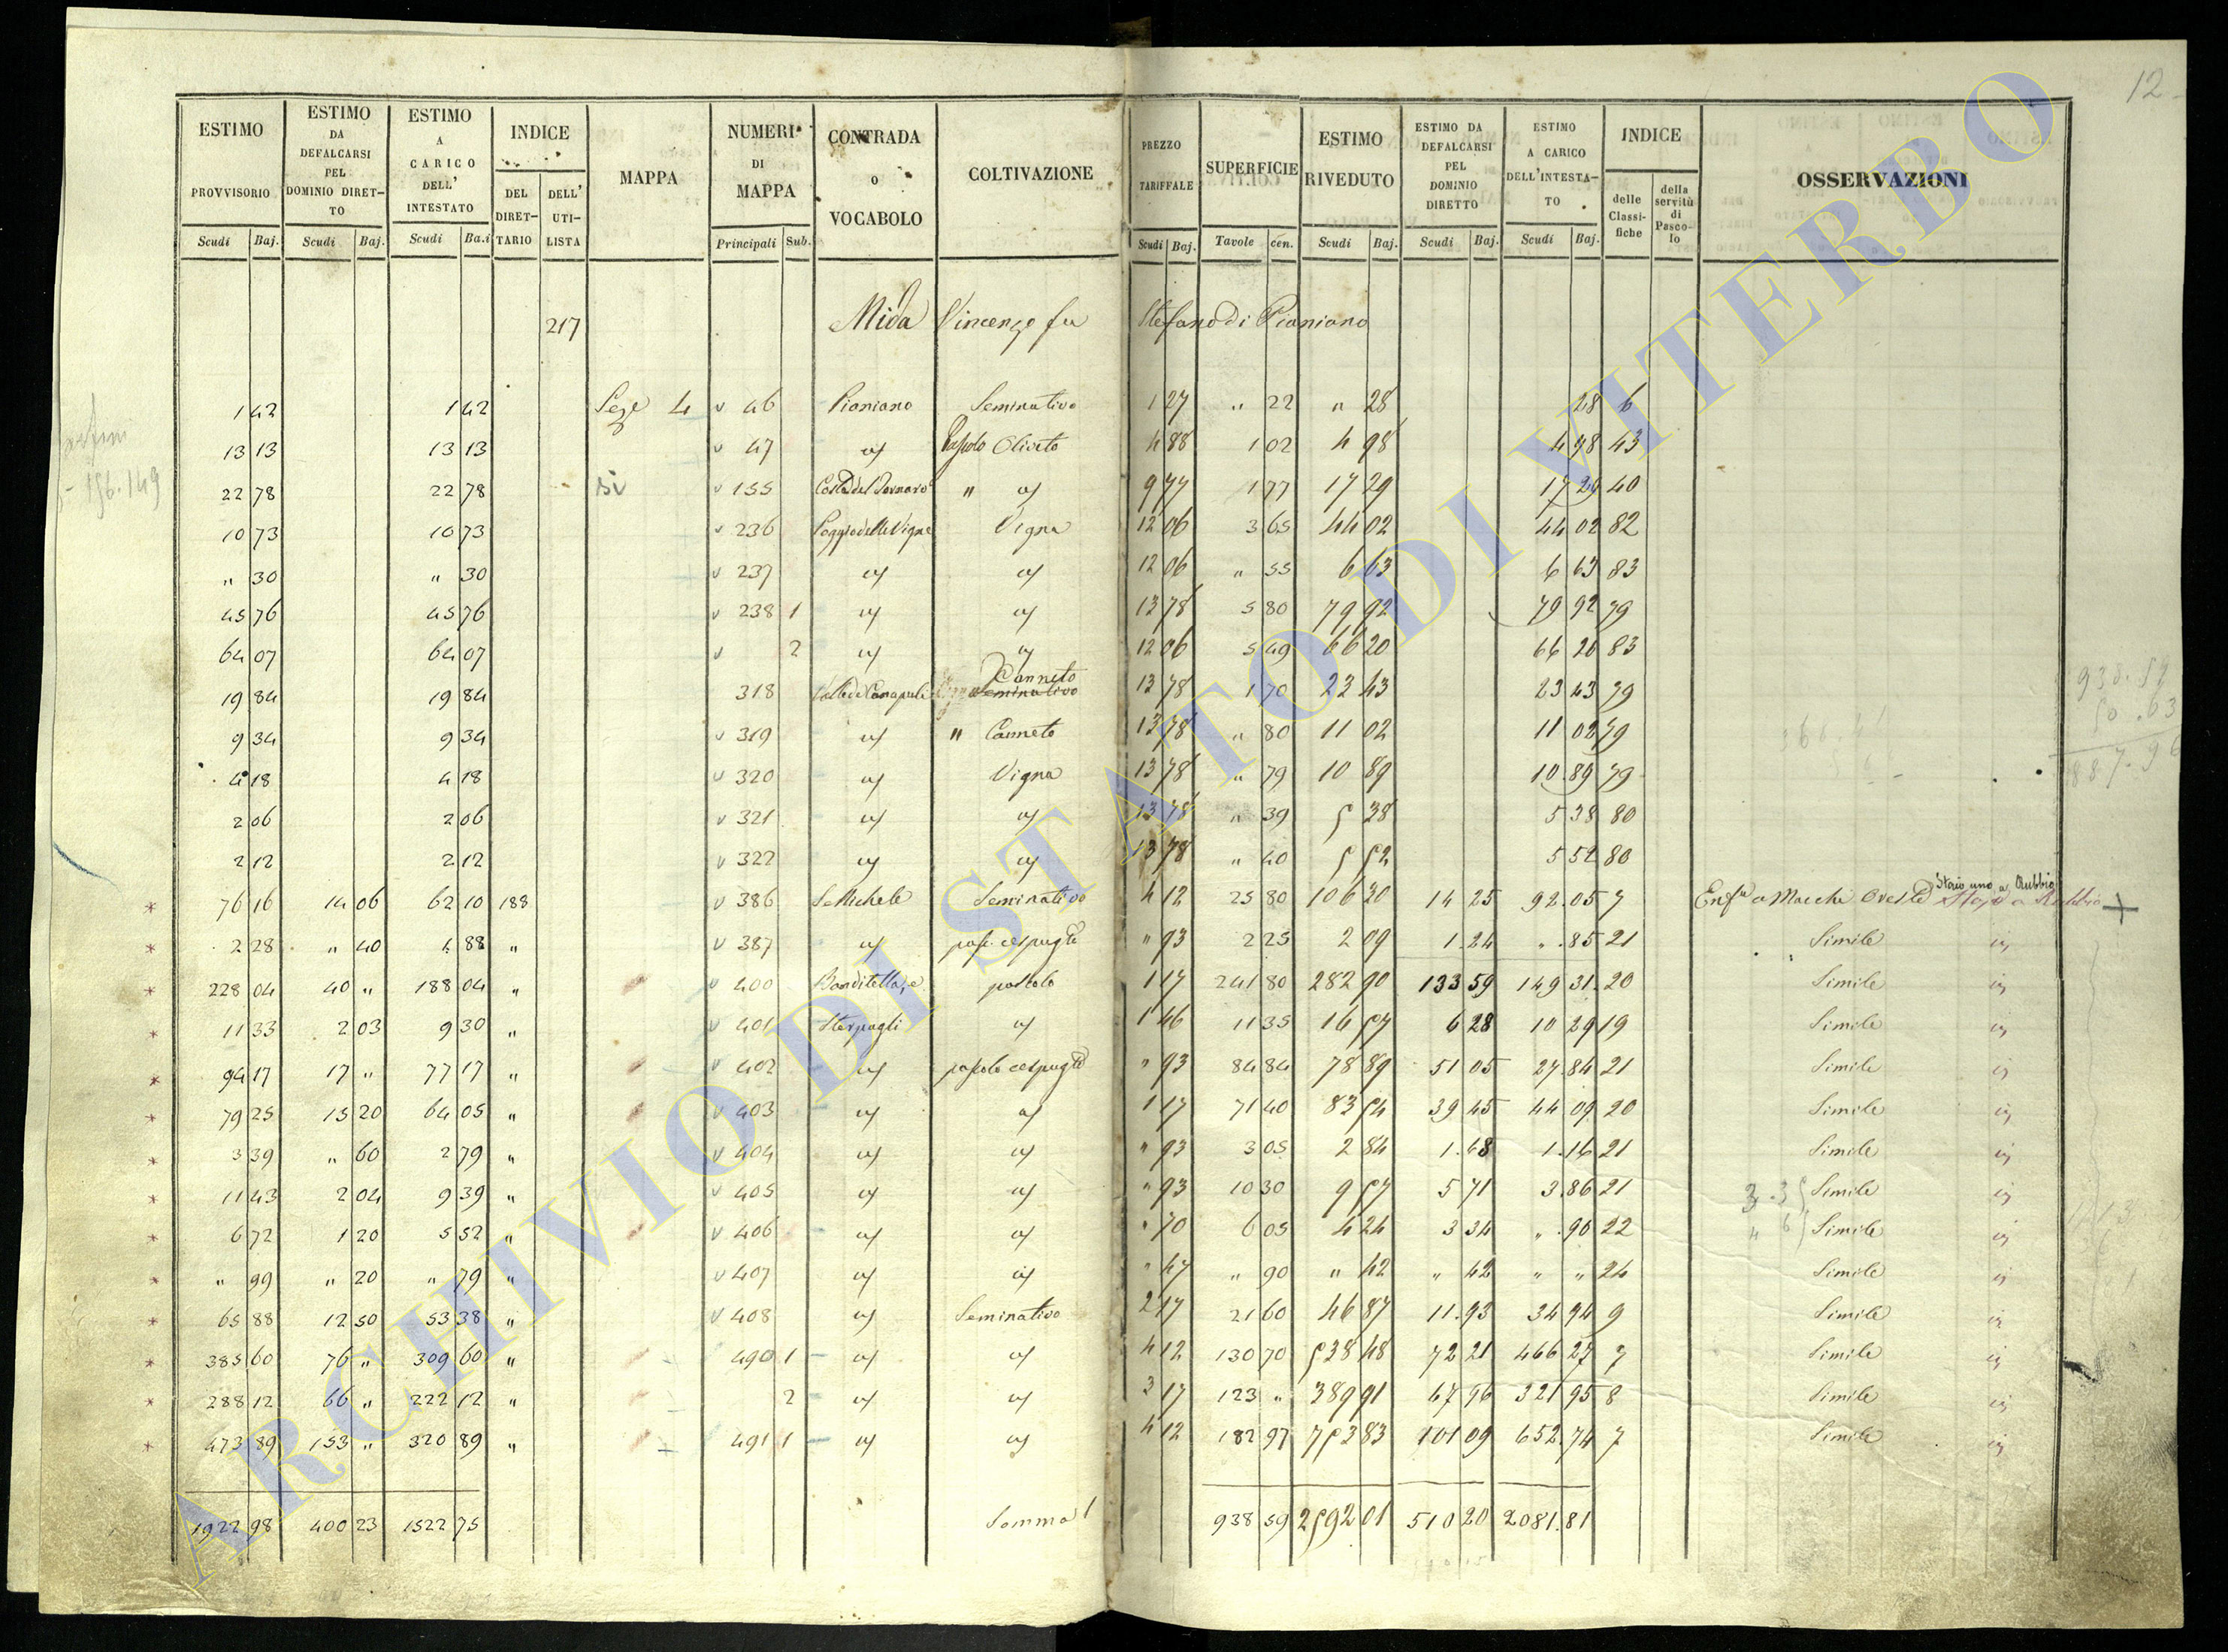 12
ESTIMO PROVVISORIO Scudi Baj. | ESTIMO DA DEFALCARSI PEL DOMINIO DIRET-TO Scudi Baj. | ESTIMO A CARICO DELL' INTESTATO Scudi Ba.i | INDICE DEL DIRET-TARIO DELL' UTI-LISTA | MAPPA | NUMERI DI MAPPA Principali Sub. | CONTRADA O VOCABOLO | COLTIVAZIONE | PREZZO TARIFFALE Scudi Baj. | SUPERFICIE Tavole cen. | ESTIMO RIVEDUTO Scudi Baj. | ESTIMO DA DEFALCARSI PEL DOMINIO DIRETTO Scudi Baj. | ESTIMO A CARICO DELL'INTESTA-TO Scudi Baj. | INDICE delle Classi-fiche della servitù di Pasco-lo | OSSERVAZIONI
217 Mida Vincenzo fu Stefano di Pianiano
1 42 1 42 Seze 4 v 46 Pianiano Seminativo 1 27 " 22 " 28 28 6
13 13 13 13 v 47 Pascolo Oliveto 4 88 1 02 4 98 4 98 43
22 78 22 78 si v 155 " 9 77 1 77 17 29 17 29 40
10 73 10 73 v 236 Poggio delle Vigne Vigna 12 06 3 65 44 02 44 02 82
" 30 " 30 v 237 12 06 " 55 6 63 6 63 83
45 76 45 76 v 238 1 13 78 5 80 79 92 79 92 79
64 07 64 07 v 2 12 06 5 49 66 20 66 20 83
19 84 19 84 318 Canneto Seminativo 13 78 1 70 23 43 23 43 79
9 34 9 34 v 319 " Canneto 13 78 " 80 11 02 11 02 79
4 18 4 18 v 320 Vigna 13 78 " 79 10 89 10 89 79
2 06 2 06 v 321 13 78 " 39 5 38 5 38 80
2 12 2 12 v 322 13 78 " 40 5 52 5 52 80
* 76 16 14 06 62 10 188 v 386 S. Michele Seminativo 4 12 25 80 106 30 14 25 92.05 7 Enf.ta a Macchi Oreste Staio uno a Rubbio
* 2 28 " 40 1 88 " v 387 " 93 2 25 2 09 1.24 " .85 21 Simile
* 228 04 40 " 188 04 " v 400 Banditella, e pascolo 1 17 241 80 282 90 133 59 149 31 20 Simile
* 11 33 2 03 9 30 " v 401 Sterpagli 1 46 11 35 16 57 6 28 10 29 19 Simile
* 94 17 17 " 77 17 " v 402 " 93 84 84 78 89 51 05 27.84 21 Simile
* 79 25 15 20 64 05 " v 403 1 17 71 40 83 54 39 45 44 09 20 Simile
* 3 39 " 60 2 79 " v 404 " 93 3 05 2 84 1.68 1.16 21 Simile
* 11 43 2 04 9 39 " v 405 " 93 10 30 9 57 5 71 3.86 21 Simile
* 6 72 1 20 5 52 " v 406 " 70 6 05 4 24 3 34 " .90 22 Simile
* " 99 " 20 " 79 " v 407 " 47 " 90 " 42 " 42 " " 24 Simile
* 65 88 12 50 53 38 " v 408 Seminativo 2 17 21 60 46 87 11.93 34 94 9 Simile
* 385 60 76 " 309 60 " 490 1 4 12 130 70 538 48 72 21 466 27 7 Simile
* 288 12 66 " 222 12 " 2 3 17 123 " 389 91 67 96 321 95 8 Simile
* 473 89 153 " 320 89 " 491 1 4 12 182 97 753 83 101 09 652.74 7 Simile
1922 98 400 23 1522 75 Somma 938 59 2592 01 510 20 2081.81
ARCHIVIO DI STATO DI VITERBO